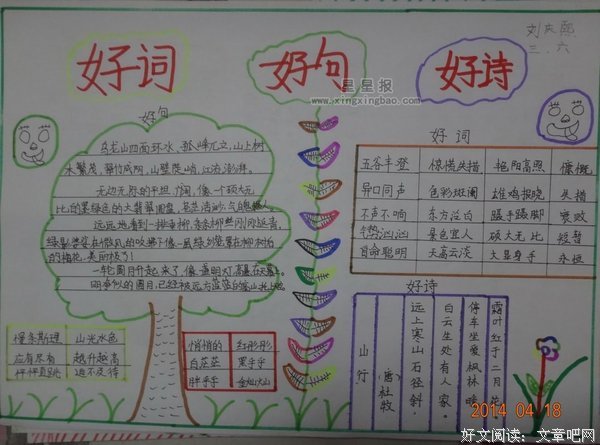 刘庆熙
三.六
好词
好句
好诗
星星报
www.xingxingbao.com
好句
乌龙山四面环水,孤峰兀立,山上树
木繁茂,翠竹成网,山壁陡峭,江涛澎湃。
无边无际的平坦
远远地看
一轮圆月升起来了,像一盏明灯,高悬在天幕上。
好词
五谷丰登 惊慌失措 艳阳高照 慷慨
异口同声 色彩斑阑 雄鸡报晓 失措
不声不响 东方泛白 蹑手蹑脚 衰败
气势汹汹 景色宜人 硕大无比 短暂
自命聪明 天高云淡 大显身手 永恒
好诗
山行
(唐)杜牧
远上寒山石径斜,
白云生处有人家。
停车坐爱枫林晚,
霜叶红于二月花。
慢条斯理 山光水色
应有尽有 越升越高
怦怦直跳 迫不及待
悄悄的 红彤彤
白茫茫 黑乎乎
胖乎乎 金灿灿
2014 04 18
好文阅读:文章吧网